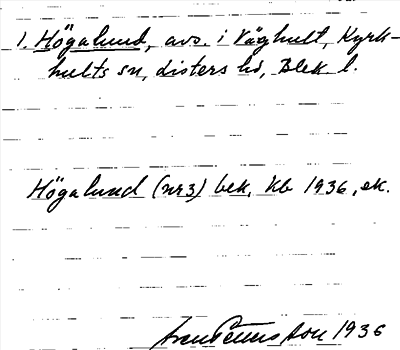 1. Högalund, avs. i Våghult, Kyrk-
hults sn, Listers hd, Blek. l.
Högalund (nr3) bek. Kb 1936, ek.
1936